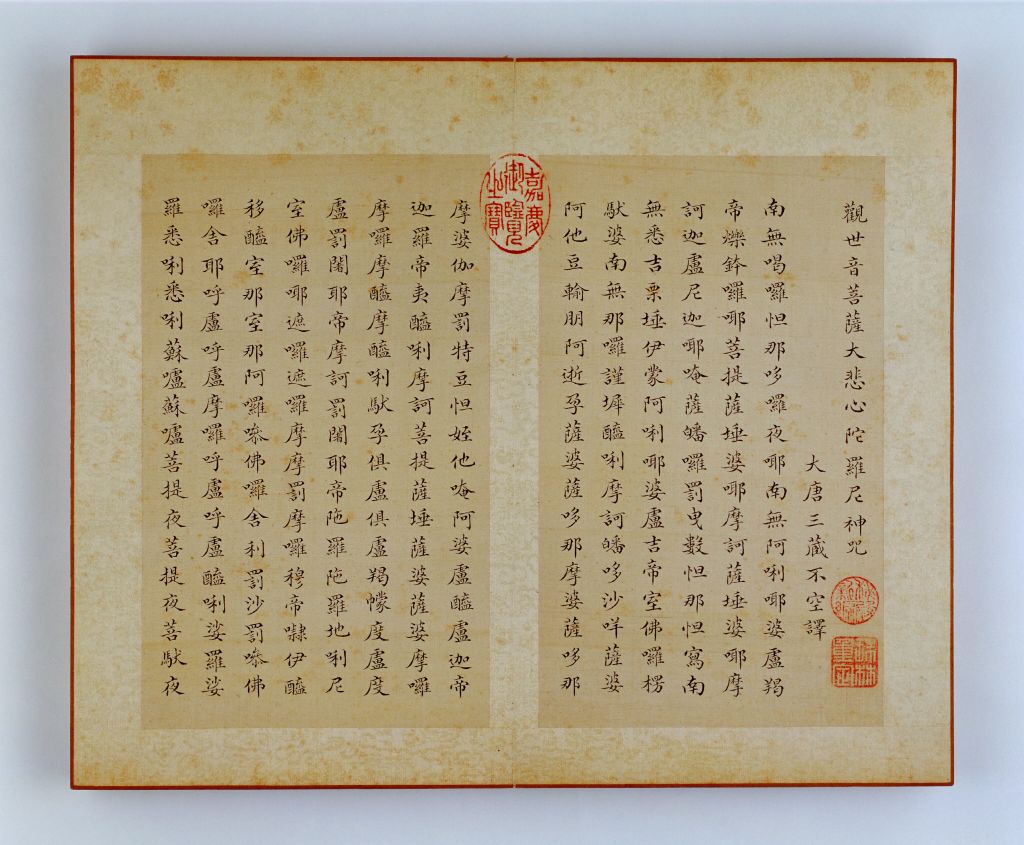 觀世音菩薩大悲心陀羅尼神咒
大唐三藏不空譯
南無喝囉怛那哆囉夜耶南無阿唎耶婆盧羯
帝爍鉢囉耶菩提薩埵婆耶摩訶薩埵婆耶摩
訶迦盧尼迦耶唵薩皤囉罰曳數怛那怛寫南
無悉吉栗埵伊蒙阿唎耶婆盧吉帝室佛囉楞
馱婆南無那囉謹墀醯唎摩訶皤哆沙咩薩婆
阿他豆輸朋阿逝孕薩婆薩哆那摩婆薩哆那
摩婆伽摩罰特豆怛姪他唵阿婆盧醯盧迦帝
迦羅帝夷醯唎摩訶菩提薩埵薩婆薩婆摩囉
摩囉摩醯摩醯唎馱孕俱盧俱盧羯懞度盧度
盧罰闍耶帝摩訶罰闍耶帝陁羅陁羅地唎尼
室佛囉耶遮囉遮囉摩摩罰摩囉穆帝㘑伊醯
移醯室那室那阿囉嘇佛囉舍利罰沙罰嘇佛
囉舍耶呼盧呼盧摩囉呼盧呼盧醯唎娑羅娑
羅悉唎悉唎蘇嚧蘇嚧菩提夜菩提夜菩馱夜
嘉慶御覽之寶